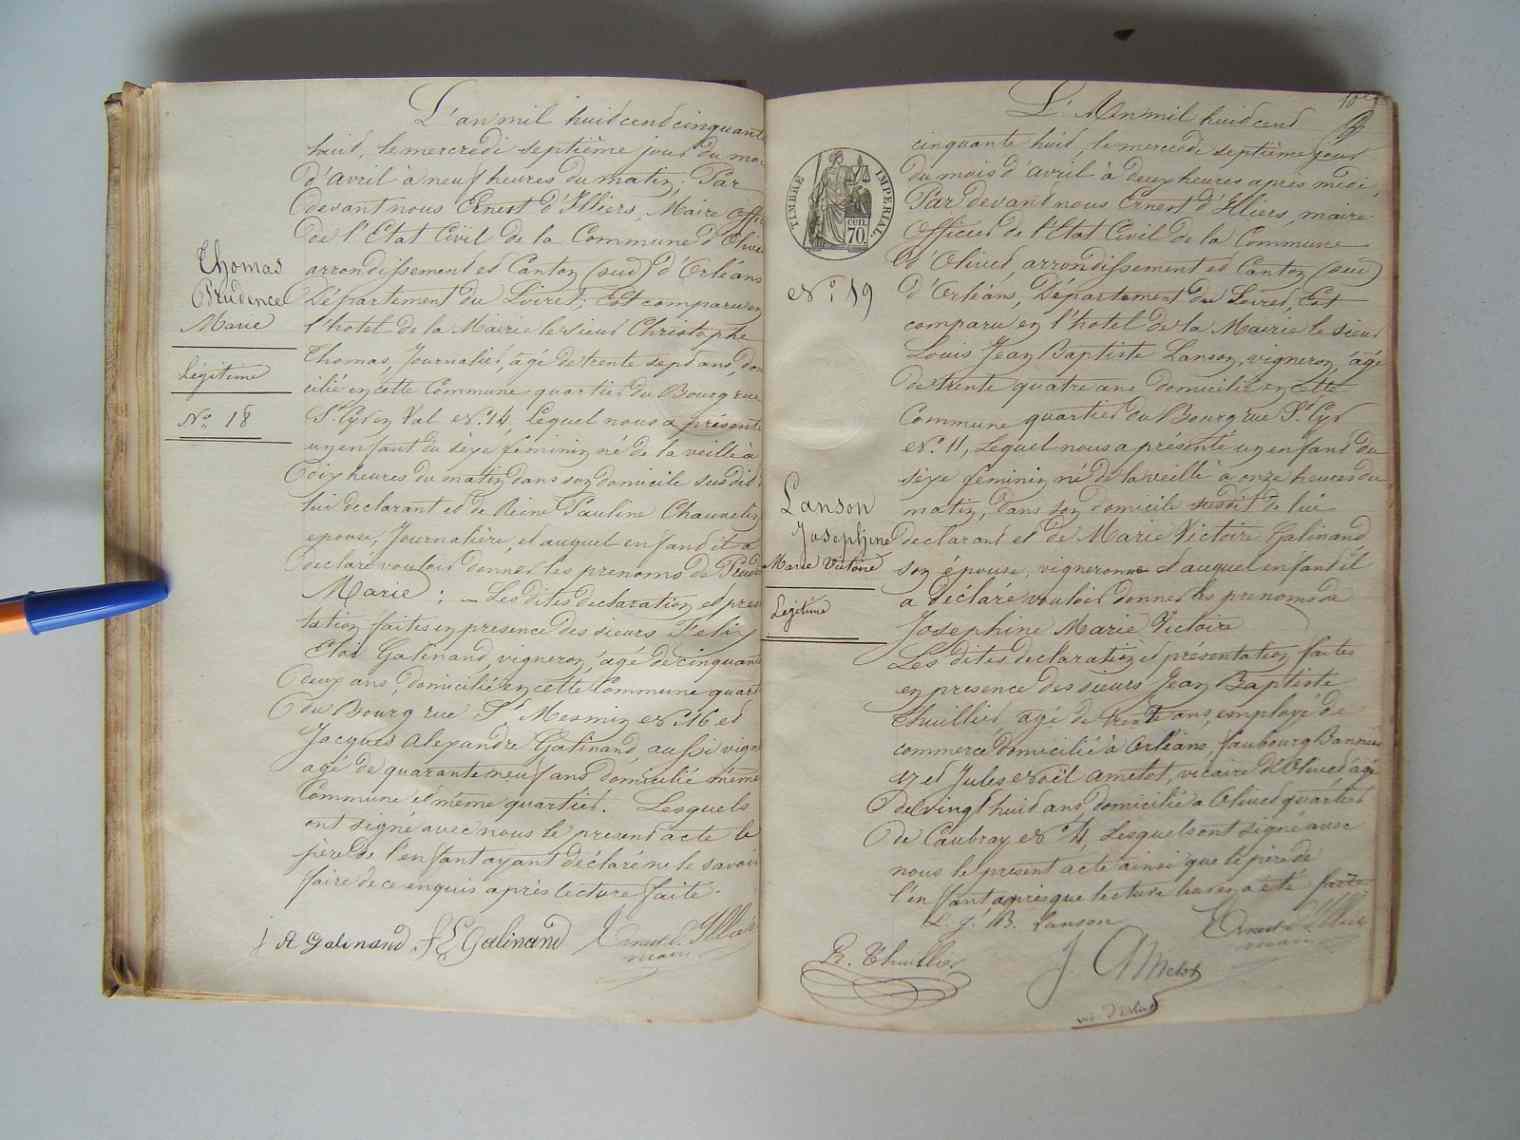 L'an mil huit cent cinquante
huit, le mercredi septième jour du moi
d'avril à neuf heures du matin; Par
devant nous Ernest d'Illiers, Maire offi
de l'Etat Civil de la Commune d'Olive
arrondissement et Canton (sud) d'Orléans
Département du Loiret; Est comparu en
l'hotel de la Mairie le sieur Christophe
Thomas, Journalier, agé de trente sept ans, dom
cilié en cette Commune quartier du Bourg rue
St Cyr en Val No. 14, Lequel nous a présenté
un enfant du sexe féminin né de la veille à
dix heures du matin dans son domicile susdit
lui declarant et de Reine Pauline Chauvelin
epouse, Journalière, et auquel enfant il a
declaré vouloir donner les prenoms de Prud
Marie : — Les dites declaration et prés
tation faites en presence des sieurs Felix
Eloi Galinand, vigneron, agé de cinquant
deux ans, domicilié en cette Commune quart
du Bourg rue St Mesmin No. 16 et
Jacques Alexandre Galinand, aussi vign
agé de quarante neuf ans domicilié même
Commune et même quartier. Lesquels
ont signé avec nous le present acte le
père de l'enfant ayant déclaré ne le savoir
faire de ce enquis après lecture faite.
J A Galinand F E Galinand Ernest d'Illiers
maire
Thomas
Prudence
Marie
Légitime
No. 18
10e
L'An mil huit cent
cinquante huit, le mercredi septième jour
du mois d'avril à deux heures après midi,
Par devant nous Ernest d'Illiers, maire
Officier de l'Etat Civil de la Commune
d'Olivet, arrondissement et Canton (sud)
d'Orléans, Département du Loiret, Est
comparu en l'hotel de la Mairie le sieur
Louis Jean Baptiste Lanson, vigneron, agé
de trente quatre ans domicilié en cette
Commune quartier du Bourg rue St Cyr
No. 11, Lequel nous a présenté un enfant du
sexe féminin né de la veille à onze heures du
matin, dans son domicile susdit de lui
declarant et de Marie Victoire Galinand
son épouse, vigneronne et auquel enfant il
a déclaré vouloir donner les prenoms de
Josephine Marie Victoire
Les dites declaration et présentation faites
en presence des sieurs Jean Baptiste
Thuillier, agé de trente ans, employé de
commerce domicilié à Orléans, faubourg Bannier
17 et Jules Noël Amelot, vicaire d'Olivet agé
de vingt huit ans, domicilié a Olivet quartier
de Caubray No. 4, Lesquels ont signé avec
nous le present acte ainsi que le père de
l'enfant après que lecture leur en a été faite
L. J. B. Lanson Ernest d'Illiers
maire
B. Thuillier J Amelot
vic. d'Olivet
TIMBRE IMPERIAL
CENT. 70
No. 19
Lanson
Josephine
Marie Victoire
Légitime